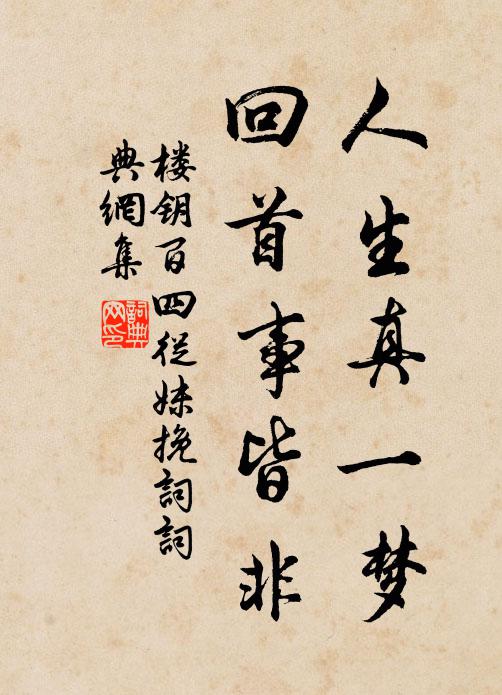 人生真一梦
回首事皆非
楼钥百四従妹挽詞詞
典網集
詞典
网印